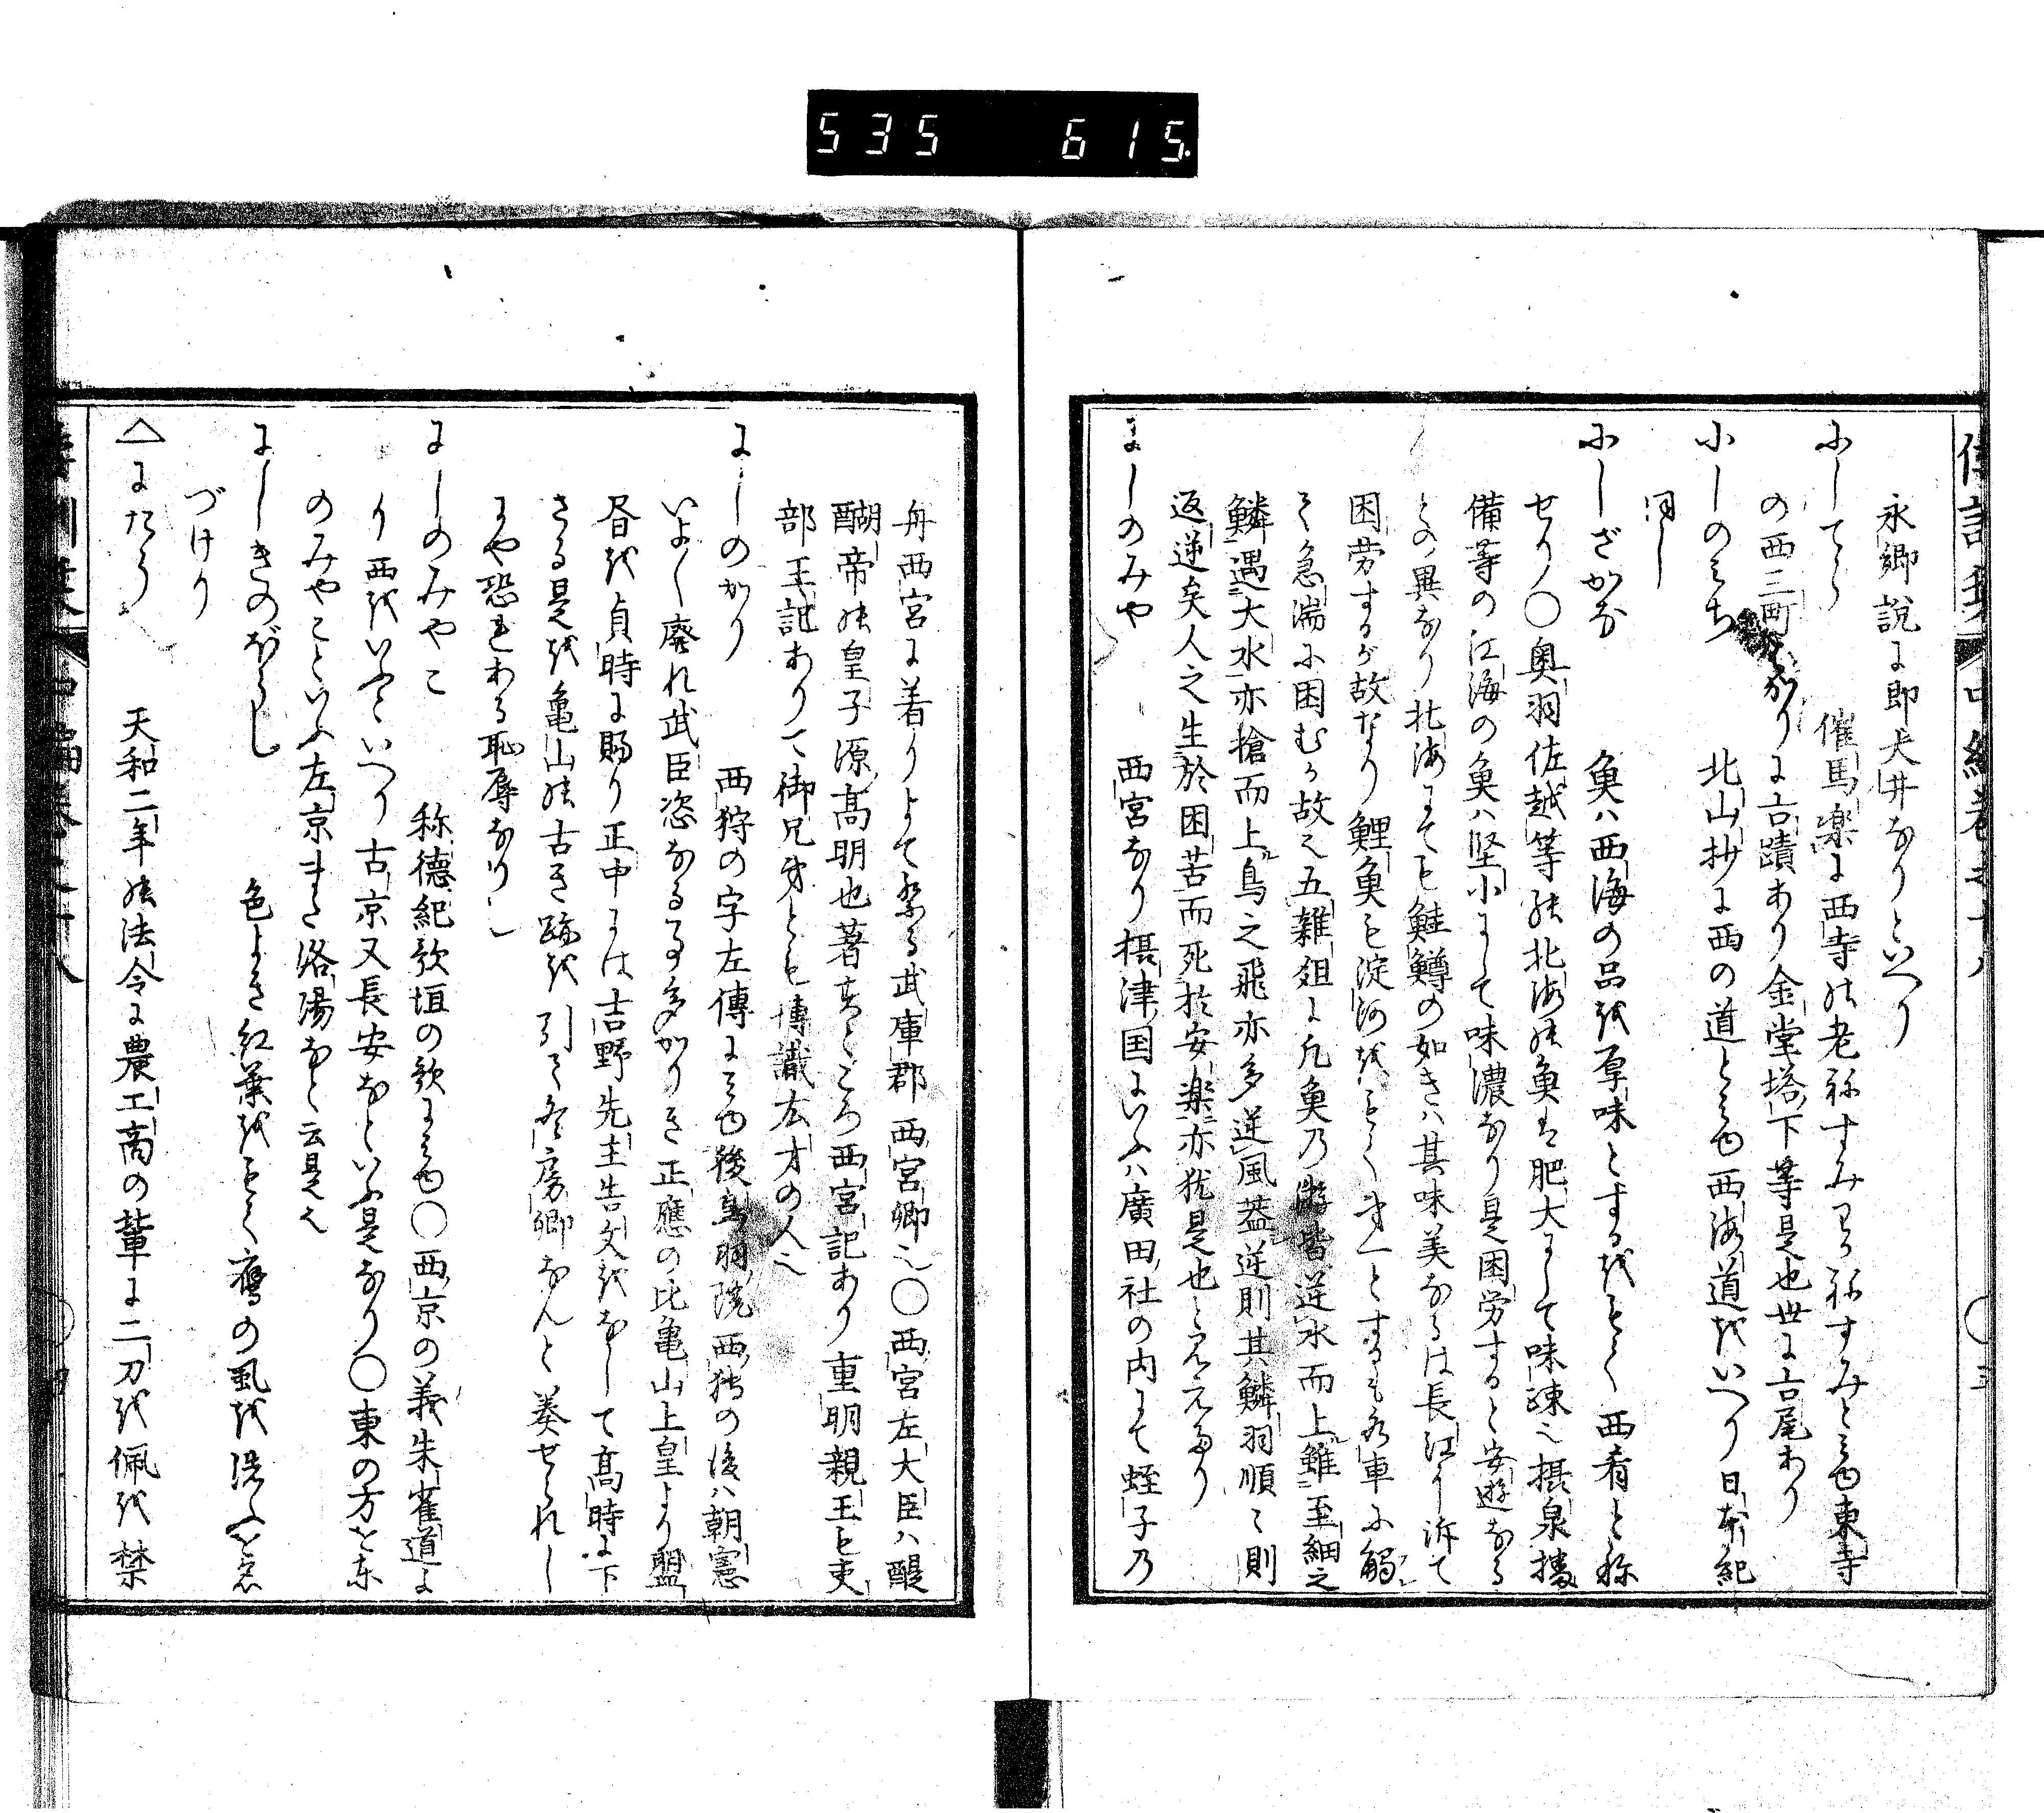 535 615
永卿説に即犬井なりといへり
にしてら 催馬楽に西寺の老ねすみわか祢すみとみゆ東寺
の西三町はかりに古蹟あり金堂塔下等是也世に古尾あり
にしのみち 北山抄に西の道とみゆ西海道をいへり日本紀
同し
にしざかな 魚ハ西海の品を厚味とするをもて西肴と称
せり〇奥羽佐越等の北海の魚は肥大にして味疎也摂泉播
備等の江海の魚ハ堅小にして味濃なり是困労すると安遊なる
との異なり北海にても鮭鱒の如きハ其味美なるは長江に泝て
困労するが故なり鯉魚も淀河をもて第一とするも水車に觸
て急湍に困むか故也五雑爼に凡魚乃游皆逆水而上雖至細之
鱗遇大水亦搶而上鳥之飛亦多逆風葢逆則其鱗羽順〻則
返逆矣人之生於困苦而死於安楽亦犹是也と見えたり
にしのみや 西宮なり摂津国にいふハ廣田社の内にて蛭子乃
舟西宮に着りよて祭る武庫郡西宮郷也〇西宮左大臣ハ醍
醐帝の皇子源高明也著すところ西宮記あり重明親王も吏
部王記ありて御兄弟とも博識広才の人也
にしのかり 西狩の字左傳にみゆ後鳥羽院西狩の後ハ朝憲
いよ〱廃れ武臣恣なる事多かりき正應の比亀山上皇より盟
昏を貞時に賜り正中には吉野先主告文をなして高時に下
さる是を亀山の古き跡を引て冬房卿なんと奏せられし
にや恐れある恥辱なり
にしのみやこ 称徳紀歌垣の歌にみゆ〇西京の義朱雀道よ
り西をいふといへり古京又長安なといふ是なり〇東の方を東
のみやこといふ左京また洛陽なと云是也
にしきのぼうし 色よき紅葉をもて鷹の虱を洗ふを名
づけり
△にたう 天和二年の法令に農工商の輩に二刀を佩を禁